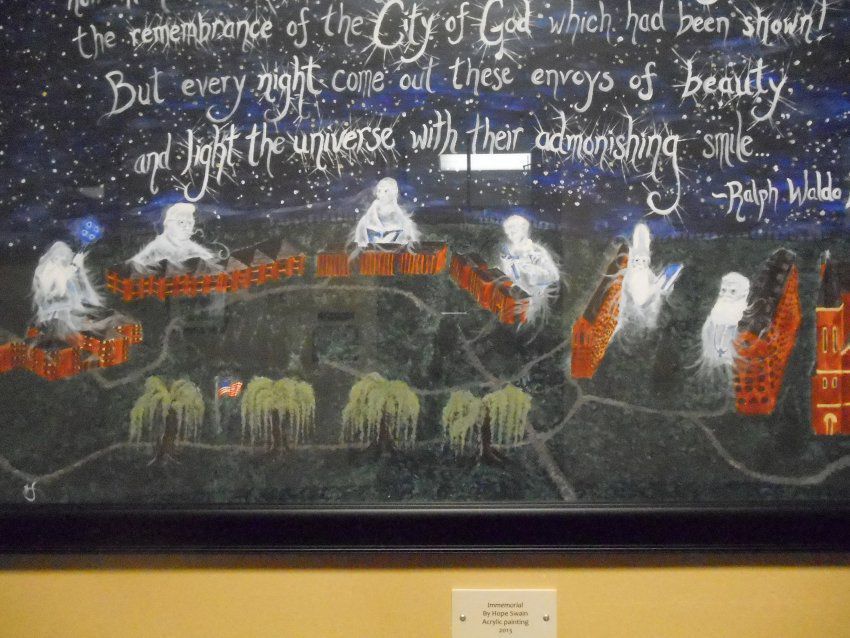 the remembrance of the City of God which had been shown!
But every night come out these envoys of beauty,
and light the universe with their admonishing smile...
~Ralph Waldo
Immemorial
By Hope Swain
Acrylic painting
2015